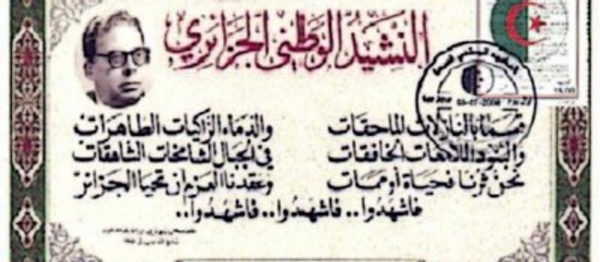 النشيد الوطني الجزائري
قسما بالنازلات الماحقات والدماء الزاكيات الطاهرات
والبنود اللامعات الخافقات في الجبال الشامخات الشاهقات
نحن ثرنا فحياة أو ممات وعقدنا العزم أن تحيا الجزائر
فاشهدوا.. فاشهدوا.. فاشهدوا..